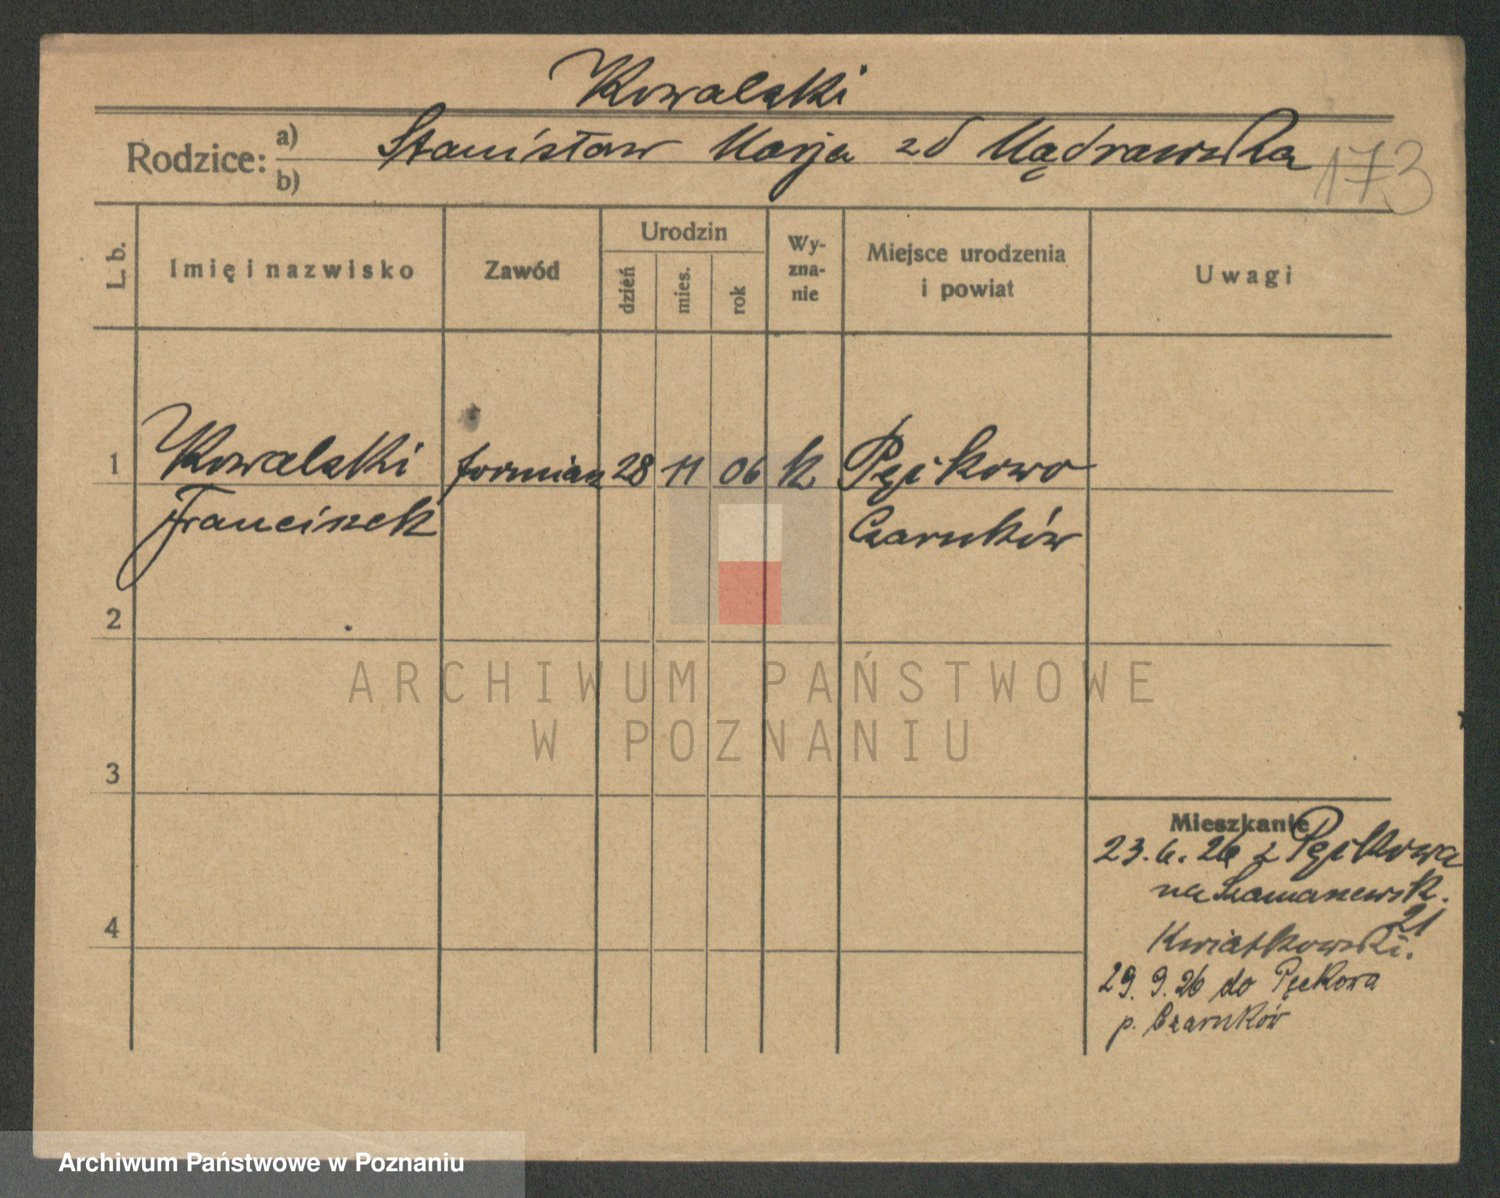 Kowalski
Rodzice: a) Stanisław Marja zd Mądrawska
b)
173
L. b. Imię i nazwisko Zawód Urodzin dzień mies. rok Wyznanie Miejsce urodzenia i powiat Uwagi
1 Kowalski formian 28 11 06 k Pęikowo
Franciszek Czarnków
2
3
4
Mieszkanie
23. 6. 26 z Pęikowa
na
21
Kwiatkowski.
29. 9. 26 do Pęckowa
p. Czarnków
ARCHIWUM PAŃSTWOWE
W POZNANIU
Archiwum Państwowe w Poznaniu